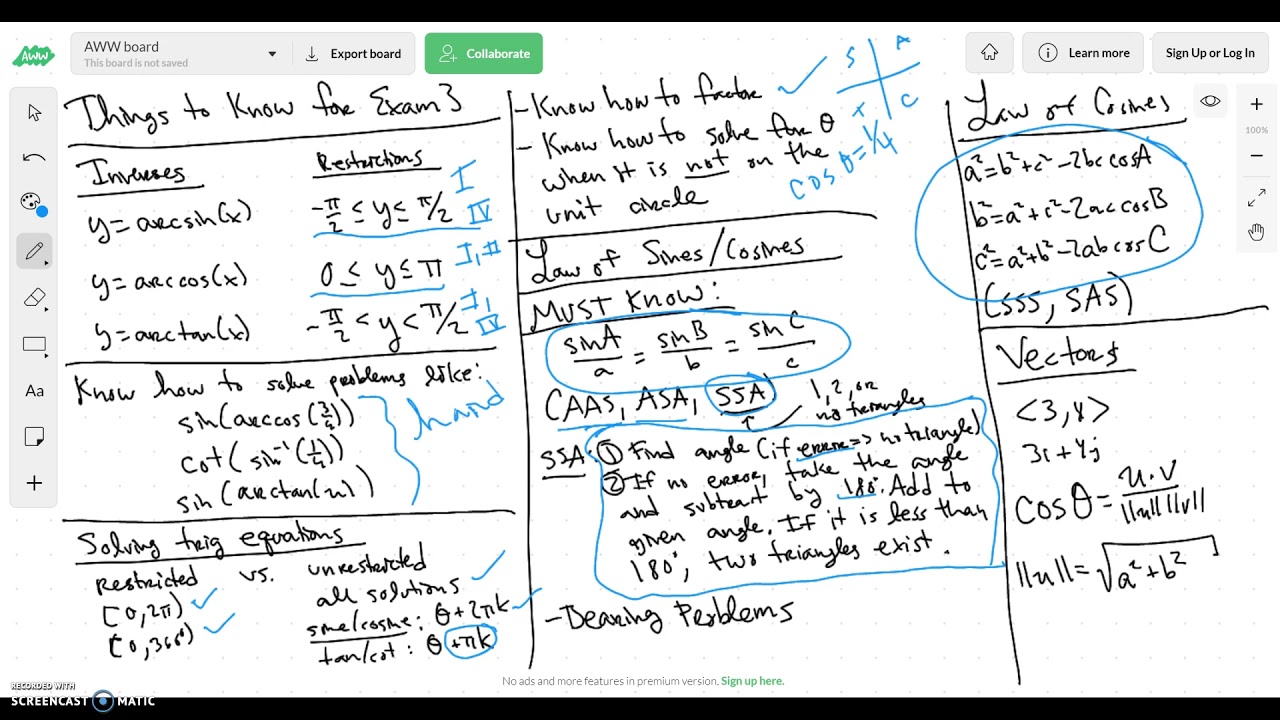 AWW
AWW board
This board is not saved
Export board
Collaborate
Learn more
Sign Up or Log In
100%
Aa
Things to Know for Exam 3
Inverses
Restrictions
y = arcsin(x)
-π/2 ≤ y ≤ π/2
I
IV
y = arccos(x)
0 ≤ y ≤ π
I, II
y = arctan(x)
-π/2 < y < π/2
I,
IV
Know how to solve problems like:
sin(arccos(3/4))
cot(sin⁻¹(1/4))
sin(arctan(u))
hand
Solving trig equations
Restricted vs. unrestricted
[0, 2π)
[0, 360°)
all solutions
sine/cosine: θ + 2πk
tan/cot: θ + πk
- Know how to factor
S A
T C
- Know how to solve for θ
when it is not on the
unit circle
cos θ = 1/4
Law of Sines/Cosines
MUST KNOW:
sinA/a = sinB/b = sinC/c
(AAS, ASA, SSA)
1, 2, or
no triangles
SSA: ① Find angle (if error => no triangle)
② If no error, take the angle
and subtract by 180°. Add to
given angle. If it is less than
180°, two triangles exist.
- Bearing Problems
Law of Cosines
a² = b² + c² - 2bc cosA
b² = a² + c² - 2ac cosB
c² = a² + b² - 2ab cos C
(SSS, SAS)
Vectors
<3, 4>
3i + 4j
cos θ = u·v/||u|| ||v||
||u|| = √a² + b²
No ads and more features in premium version. Sign up here.
RECORDED WITH
SCREENCAST MATIC